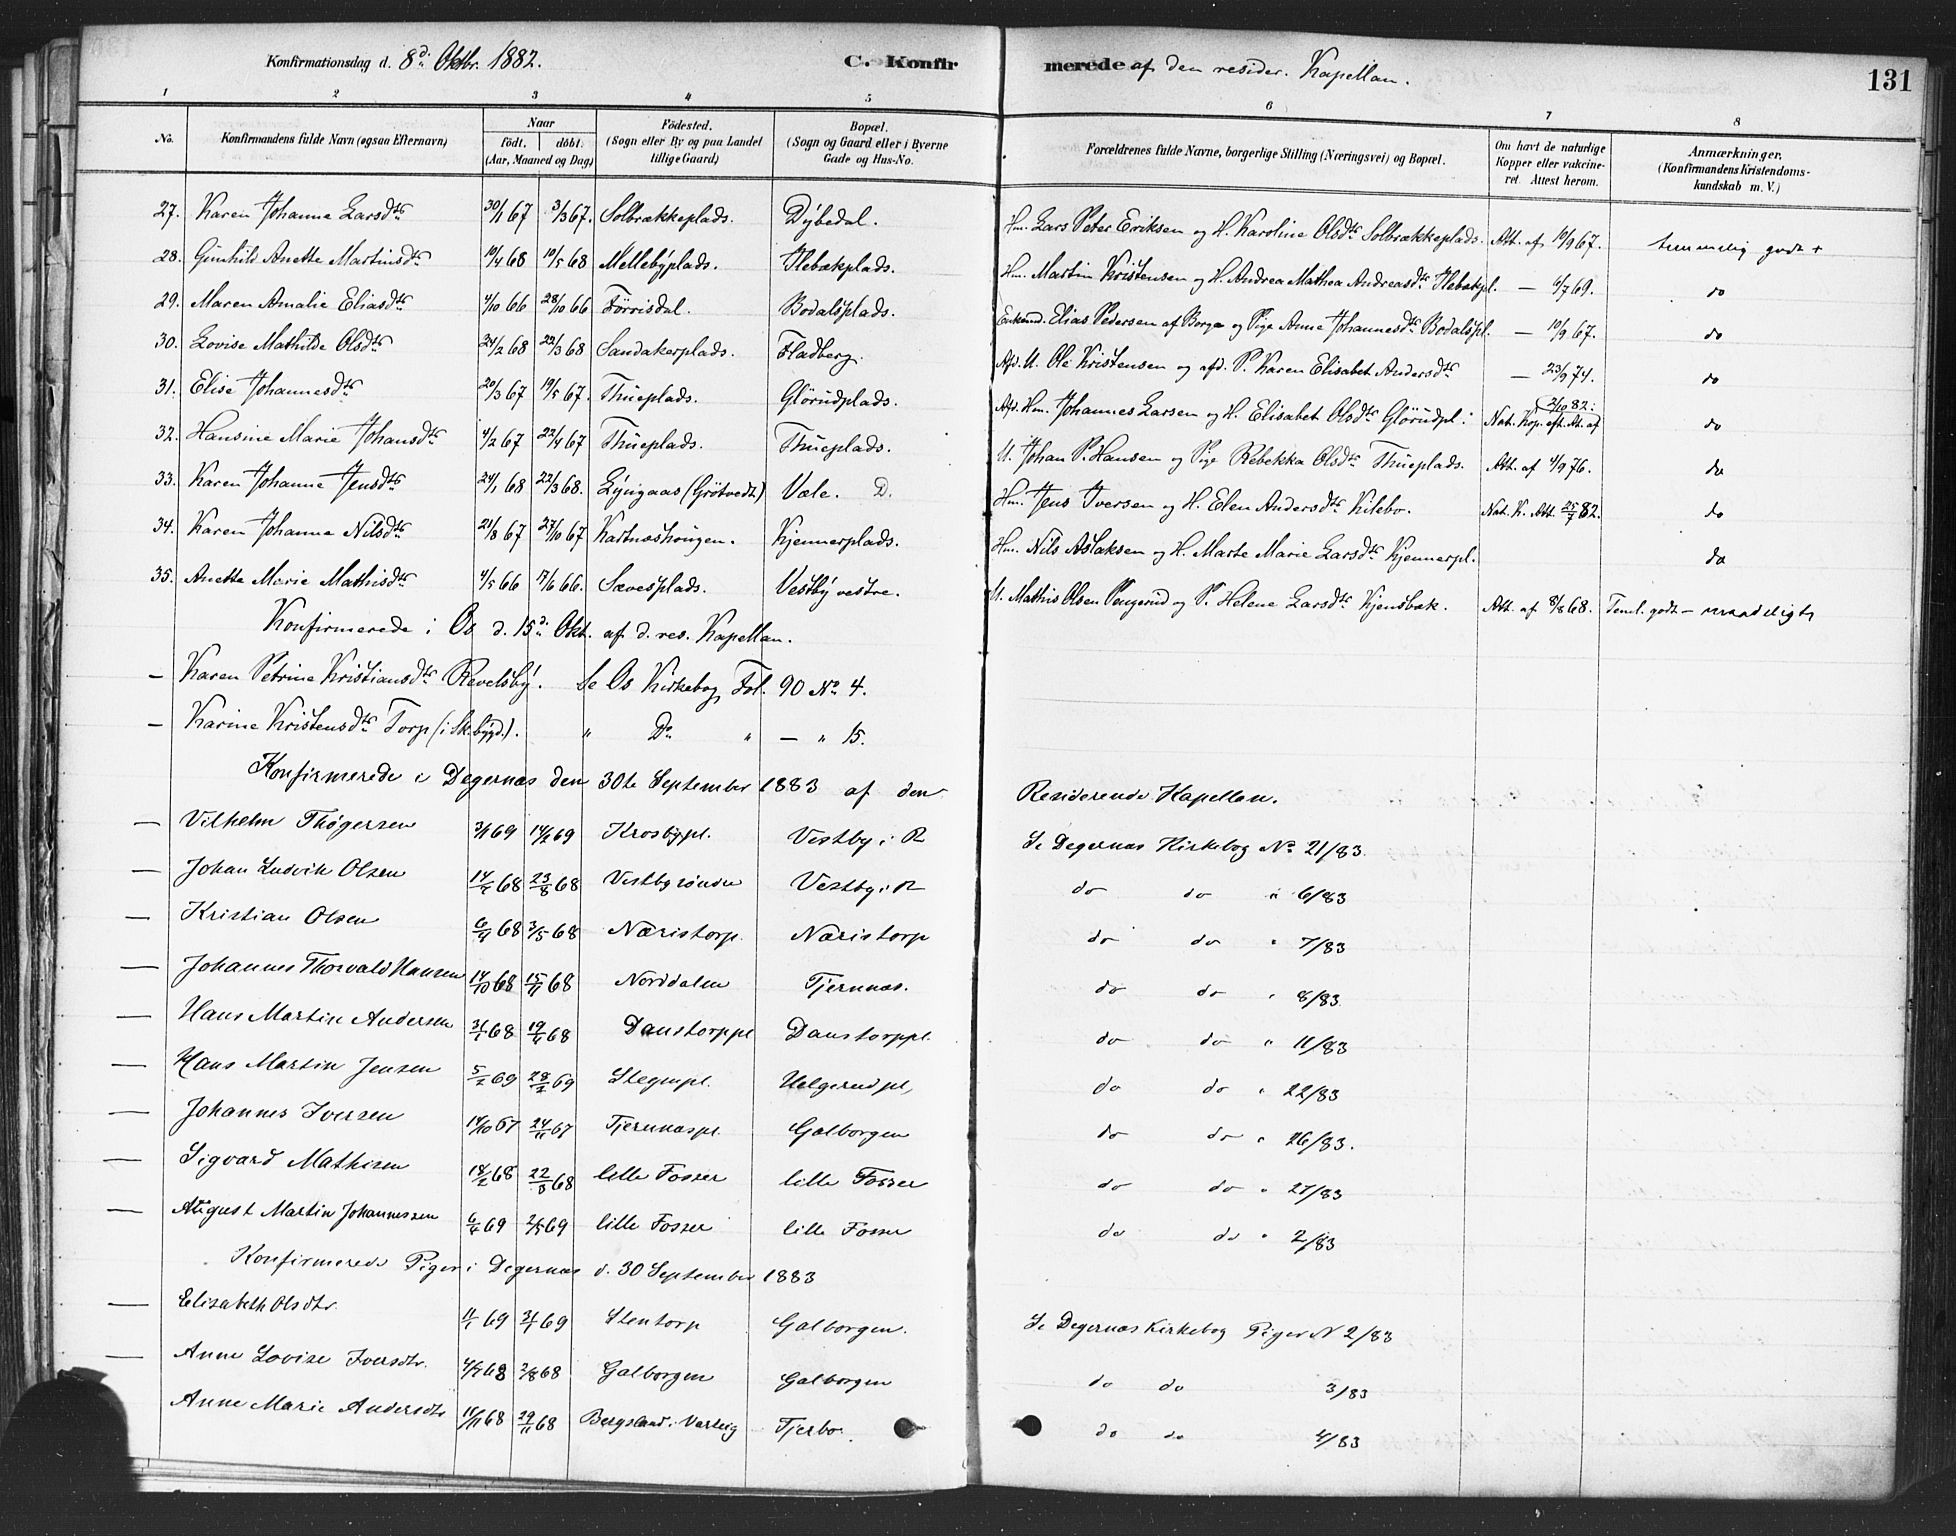 Konfirmationsdag d. 8d. Oktbr. 1882. C. Konfirmerede af den resider. Kapellan. 131
1 2 3 4 5 6 7 8
No. Konfirmandens fulde Navn (ogsaa Efternavn) Naar Födt. döbt. (Aar, Maaned og Dag) Födested. (Sogn eller By og paa Landet tillige Gaard) Bopæl. (Sogn og Gaard eller i Byerne Gade og Hus-No. Forældrenes fulde Navne, borgerlige Stilling (Næringsvei) og Bopæl. Om havt de naturlige Kopper eller vakcineret. Attest herom. Anmærkninger. (Konfirmandens Kristendomskundskab m. V.)
27. Karen Johanne Larsdtr 30/1 67 3/3 67. Solbrækkeplads. Dybedal. Hm. Lars Peter Eriksen og H. Karoline Olsdtr Solbrækkeplads. Att. af 10/9 67. temmelig godt +
28. Gunhild Anette Martinsdtr 19/4 68 19/5 68 Mellebyplads. Ilebækplads. Hm. Martin Kristensen og H. Andrea Mathea Andreasdtr Ilebækpl. — 6/7 69. do
29. Maren Amalie Eliasdtr 4/10 66 28/10 66 Förrisdal. Bodalsplads. Enkemd. Elias Pedersen af Borge og Pige Anne Johannesdtr Bodalspl. — 10/9 67. do
30. Lovise Mathilde Olsdtr 24/2 68 22/3 68 Sandakerplads. Fladberg. Afd. U. Ole Kristensen og afd. P. Karen Elisabet Andersdtr — 23/9 74. do
31. Elise Johannesdtr 20/3 67 19/5 67. Thueplads. Glörudplads. Afd. Hm. Johannes Larsen og H. Elisabet Olsdtr Glörudpl: Nat. Kop. eft. At. af 2/10 82. do
32. Hansine Marie Johansdtr 4/2 67 22/4 67 Thueplads. Thueplads. U. Johan P. Hansen og Pige Rebekka Olsdtr Thueplads. Att. af 4/9 76. do
33. Karen Johanne Jensdtr 24/1 68 22/3 68. Lyngaas (Grötvedt) Væle. D. Hm. Jens Iversen og H. Elen Andersdtr Kilebo. Nat. K. Att. 25/9 82. do
34. Karen Johanne Nilsdtr 21/8 67 27/10 67 Kartnæshougen. Kjennerplads. Hm. Nils Aslaksen og H. Marte Marie Larsdtr Kjennerpl. do
35. Anette Marie Mathisdtr 4/5 66 17/6 66. Sævesplads. Vestby vestre. U. Mathis Olsen Pengerud og P. Helene Larsdtr Kjensbæk. Att. af 8/8 68. Teml. godt - maadeligt
Konfirmerede i Os d. 15d. Okt. af d. res. Kapellan.
— Karen Petrine Kristiansdtr Revelsby. Se Os Kirkebog Fol. 90 No 4.
— Karine Kristensdtr Torp (i Sk.bygd.). " Do " — " 15.
Konfirmerede i Degernæs den 30te September 1883 af den Residerende Kapellan.
— Vilhelm Thøgersen 3/1 69 14/2 69 Krosbypl. Vestby i R Se Degernæs Kirkebog No 21/83.
— Johan Ludvik Olsen 14/7 68 23/8 68 Vestbysöndre Vestby i R do do " 6/83
— Kristian Olsen 6/4 68 3/5 68 Næristorp. Næristorp do do " 7/83
— Johannes Thorvald Hansen 14/10 68 15/11 68 Norddalen Tjernæs. do do " 8/83
— Hans Martin Andersen 31/1 68 19/4 68 Danstorppl Danstorppl. do do " 11/83
— Hans Martin Jensen 5/2 69 28/2 69 Stegnpl. Helgerudpl, do do " 22/83
— Johannes Iversen 14/10 67 24/11 67 Tjernnæspl. Galborgen do do " 26/83.
— Sigvard Mathisen 18/2 68 22/3 68 lille Fosser lille Fosser do do " 27/83
— August Martin Johannessen 6/4 69 2/5 69 lille Fosser lille Fosser do do " 2/83
Konfirmerede Piger i Degernæs d. 30 September 1883
— Elizabeth Olsdtr. 11/1 69 31/1 69 Stentorp Galborgen. Se Degernæs Kirkebog Piger N 2/83
— Anne Lovise Iversdtr. 4/7 68 2/8 68 Galborgen Galborgen do do 3/83
— Anne Marie Andersdtr 11/11 68 29/11 68 Bergsland i Varteig Tjerbo. do do 4/83